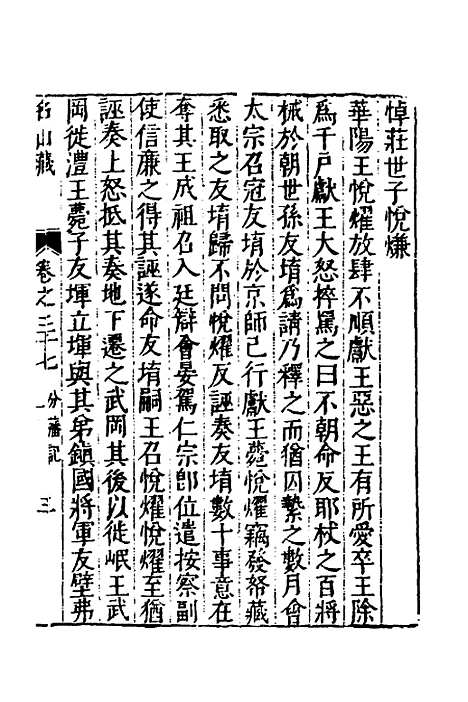 悼莊世子悅熑
華陽王悅燿放肆不順獻王惡之王有所愛卒王除
爲千戸獻王大怒捽罵之曰不朝命反耶杖之百將
械於朝世孫友堉爲請乃釋之而猶囚縶之數月會
太宗召冦友堉於京師己行獻王薨悅燿竊發帑藏
悉取之友堉歸不問悅燿反誣奏友堉數十事意在
奪其王成祖召入廷辯會晏駕仁宗卽位遣按察副
使信廉之得其誣遂命友堉嗣王召悅燿悅燿至猶
誣奏上怒抵其奏地下遷之武岡其後以徙岷王武
岡徙澧王薨子友㙔立㙔與其弟鎮國將軍友壁弗
名山藏
卷之三十七
分藩記
一
三